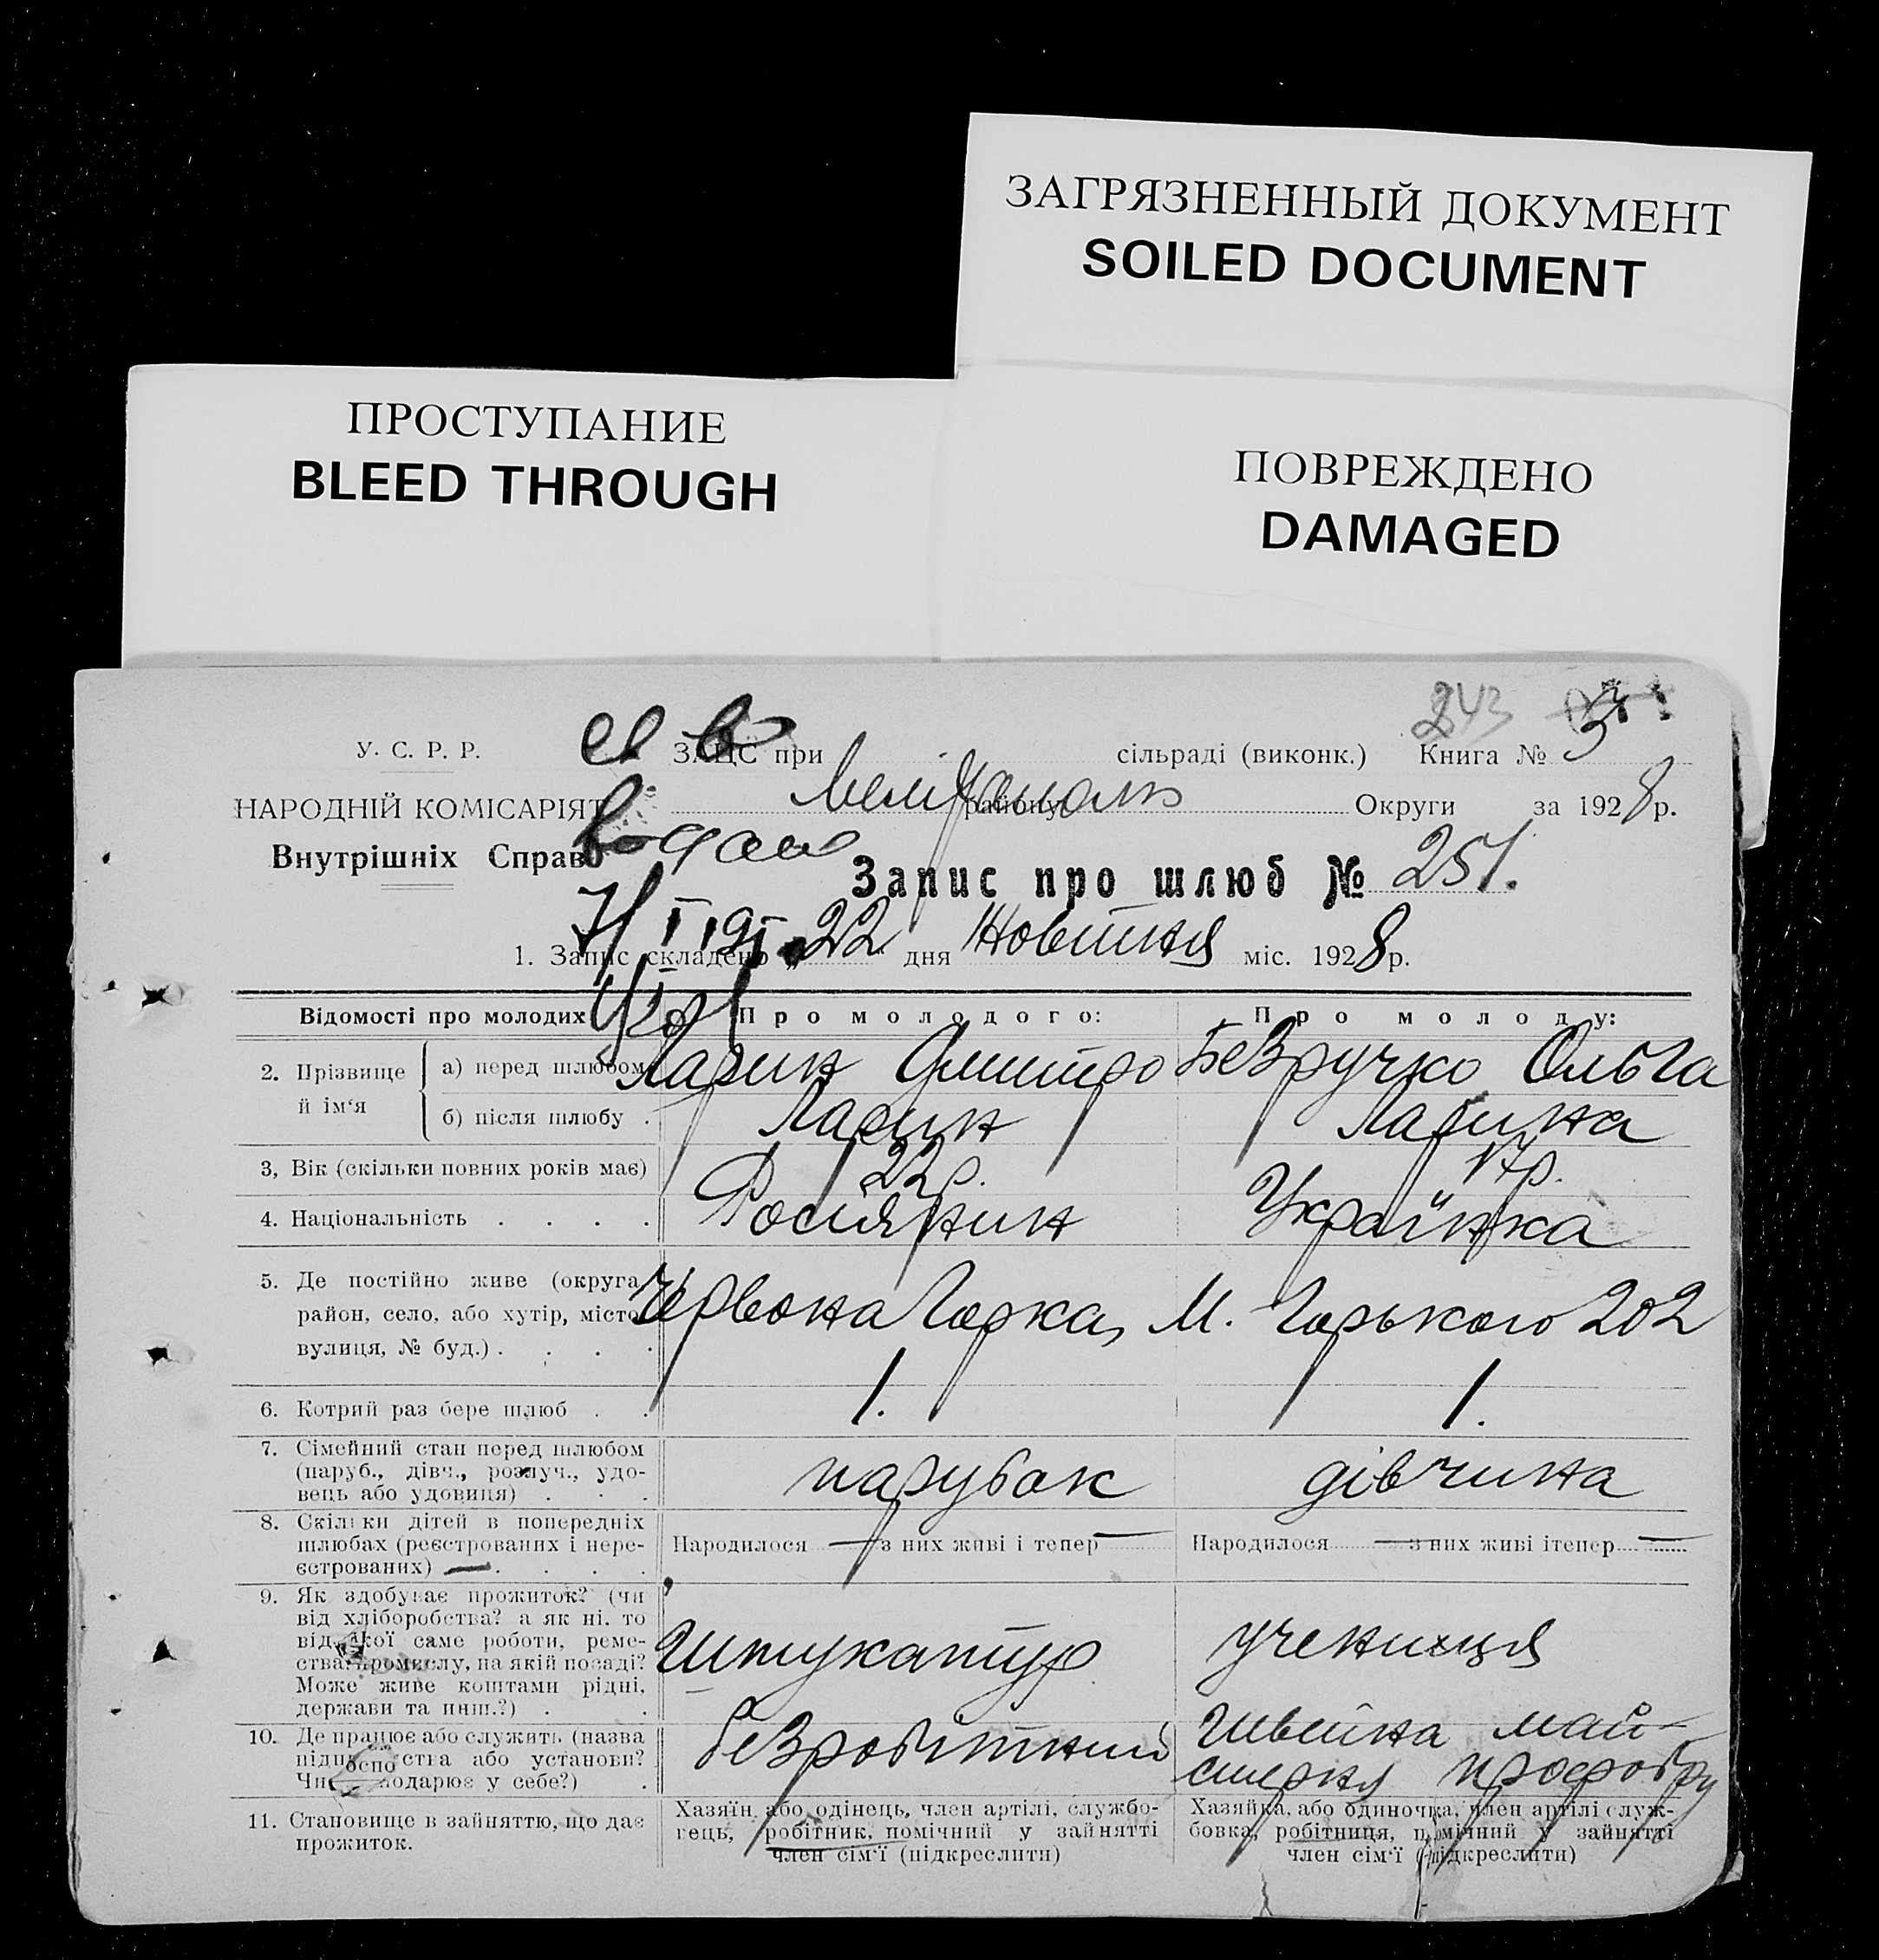 ЗАГРЯЗНЕННЫЙ ДОКУМЕНТ
SOILED DOCUMENT
ПРОСТУПАНИЕ
BLEED THROUGH
ПОВРЕЖДЕНО
DAMAGED
243
У. С. Р. Р.
НАРОДНІЙ КОМІСАРІЯТ
Внутрішніх Справ
св во
ЗАЦС при сільраді (виконк.) Книга № 3
району Округи за 1928 р.
Запис про шлюб № 251.
1. Запис складено „22 дня Жовтня міс. 1928 р.
Відомості про молодих Про молодого: Про молоду:
2. Прізвище й ім‘я
а) перед шлюбом Ларин Дмитро Безручко Ольга
б) після шлюбу . Ларин Ларина
3, Вік (скільки повних років має) 22 р. 17 р.
4. Національність . . . . Росіянин Українка
5. Де постійно живе (округа,
район, село, або хутір, місто,
вулиця, № буд.) . . . .
Червона Горка, М. Горького 202
6. Котрий раз бере шлюб . . 1. 1.
7. Сімейний стан перед шлюбом
(паруб., дівч., розлуч., удо-
вець або удовиця) . . .
парубок дівчина
8. Скільки дітей в попередніх
шлюбах (реєстрованих і нере-
єстрованих) — . . . .
Народилося — з них живі і тепер — Народилося — з них живі ітепер —
9. Як здобуває прожиток? (чи
від хліборобства? а як ні, то
від якої саме роботи, реме-
ства, промислу, на якій посаді?
Може живе коштами рідні,
держави та инш.?) . .
Штукатур учениця
10. Де працює або служить (назва
підприємства або установи?
Чи господарює у себе?) .
безробітний Швейна май-
стерня профобру
11. Становище в зайняттю, що дає
прожиток.
Хазяїн, або одінець, член артілі, службо-
вець, робітник, помічний у зайнятті
член сім‘ї (підкреслити)
Хазяйка, або одиночка, член артілі служ-
бовка, робітниця, помічний у зайнятті
член сім‘ї (підкреслити)